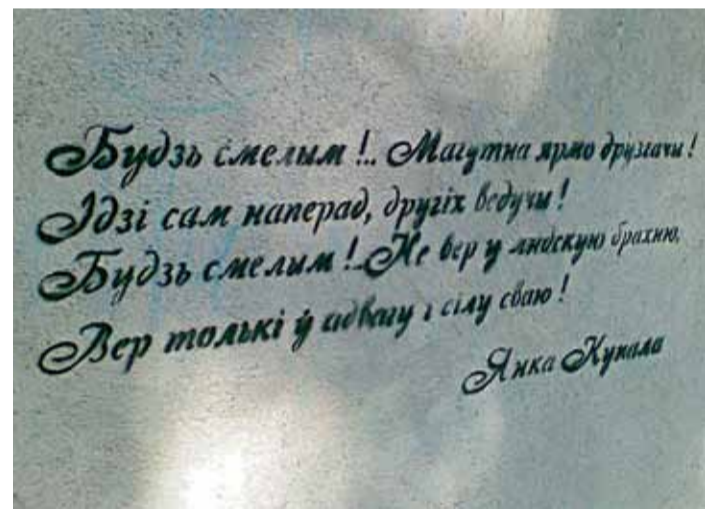 Будзь смелым!.. Магутна ярмо друзгачы!
Ідзі сам наперад, другіх ведучы!
Будзь смелым!.. Не вер у людскую брахню,
Вер толькі ў адвагу і сілу сваю!
Янка Купала